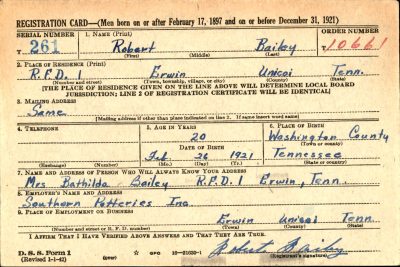 REGISTRATION CARD—(Men born on or after February 17, 1897 and on or before December 31, 1921)
SERIAL NUMBER 1. NAME (Print) ORDER NUMBER
T 261 Robert Bailey T 10661
(First) (Middle) (Last)
2. PLACE OF RESIDENCE (Print)
R.F.D. 1 Erwin Unicoi Tenn.
(Number and street) (Town, township, village, or city) (County) (State)
[THE PLACE OF RESIDENCE GIVEN ON THE LINE ABOVE WILL DETERMINE LOCAL BOARD
JURISDICTION; LINE 2 OF REGISTRATION CERTIFICATE WILL BE IDENTICAL]
3. MAILING ADDRESS
Same
[Mailing address if other than place indicated on line 2. If same insert word same]
4. TELEPHONE 5. AGE IN YEARS 6. PLACE OF BIRTH
20 Washington County
DATE OF BIRTH (Town or county)
Feb. 26 1921 Tennessee
(Exchange) (Number) (Mo.) (Day) (Yr.) (State or country)
7. NAME AND ADDRESS OF PERSON WHO WILL ALWAYS KNOW YOUR ADDRESS
Mrs Bathilda Bailey R.F.D. 1 Erwin, Tenn.
8. EMPLOYER'S NAME AND ADDRESS
Southern Potteries Inc.
9. PLACE OF EMPLOYMENT OR BUSINESS
Erwin Unicoi Tenn
(Number and street or R. F. D. number) (Town) (County) (State)
I AFFIRM THAT I HAVE VERIFIED ABOVE ANSWERS AND THAT THEY ARE TRUE.
D. S. S. Form 1
(Revised 1-1-42) (over) GPO 16—21630-1 Robert Baily
(Registrant's signature)